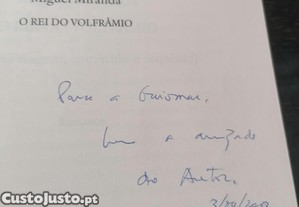 Miguel Miranda
O REI DO VOLFRÂMIO
Para a Guiomar,
com a amizade
do Autor.
CustoJusto.pt